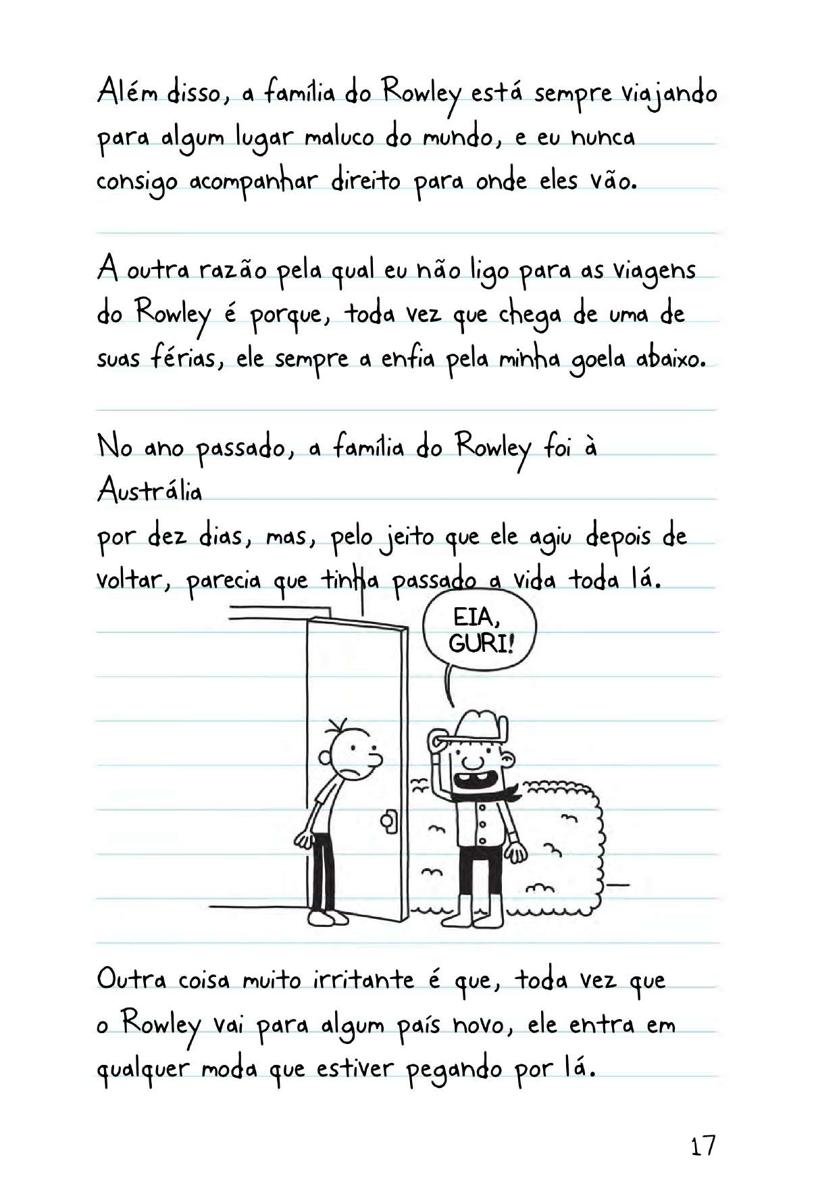 Além disso, a família do Rowley está sempre viajando
para algum lugar maluco do mundo, e eu nunca
consigo acompanhar direito para onde eles vão.
A outra razão pela qual eu não ligo para as viagens
do Rowley é porque, toda vez que chega de uma de
suas férias, ele sempre a enfia pela minha goela abaixo.
No ano passado, a família do Rowley foi à
Austrália
por dez dias, mas, pelo jeito que ele agiu depois de
voltar, parecia que tinha passado a vida toda lá.
EIA,
GURI!
Outra coisa muito irritante é que, toda vez que
o Rowley vai para algum país novo, ele entra em
qualquer moda que estiver pegando por lá.
17